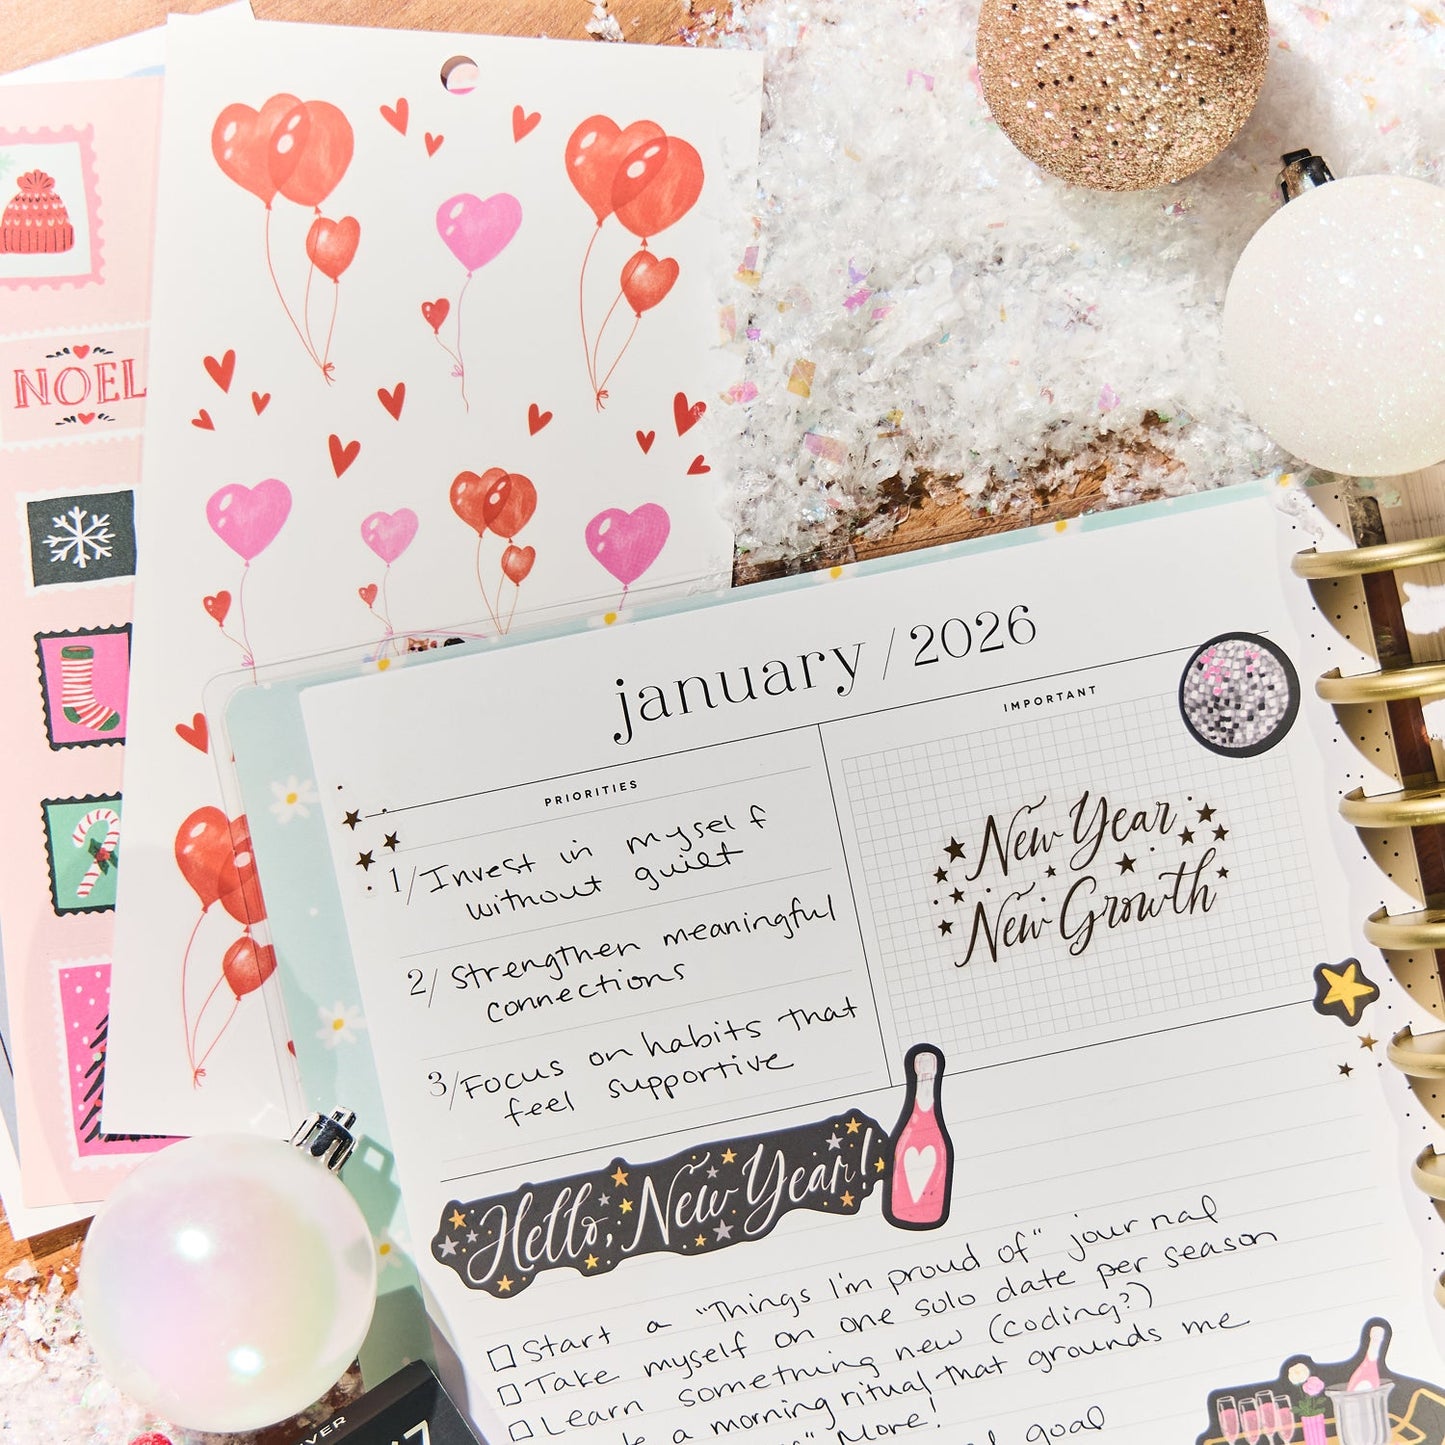 NOEL
january / 2026
PRIORITIES
1/ Invest in myself
without guilt
2/ Strengthen meaningful
connections
3/ Focus on habits that
feel supportive
IMPORTANT
New Year
New Growth
Hello, New Year!
Start a "Things I'm proud of" journal
Take myself on one solo date per season
Learn something new (coding?)
a morning ritual that grounds me
" More!
goal